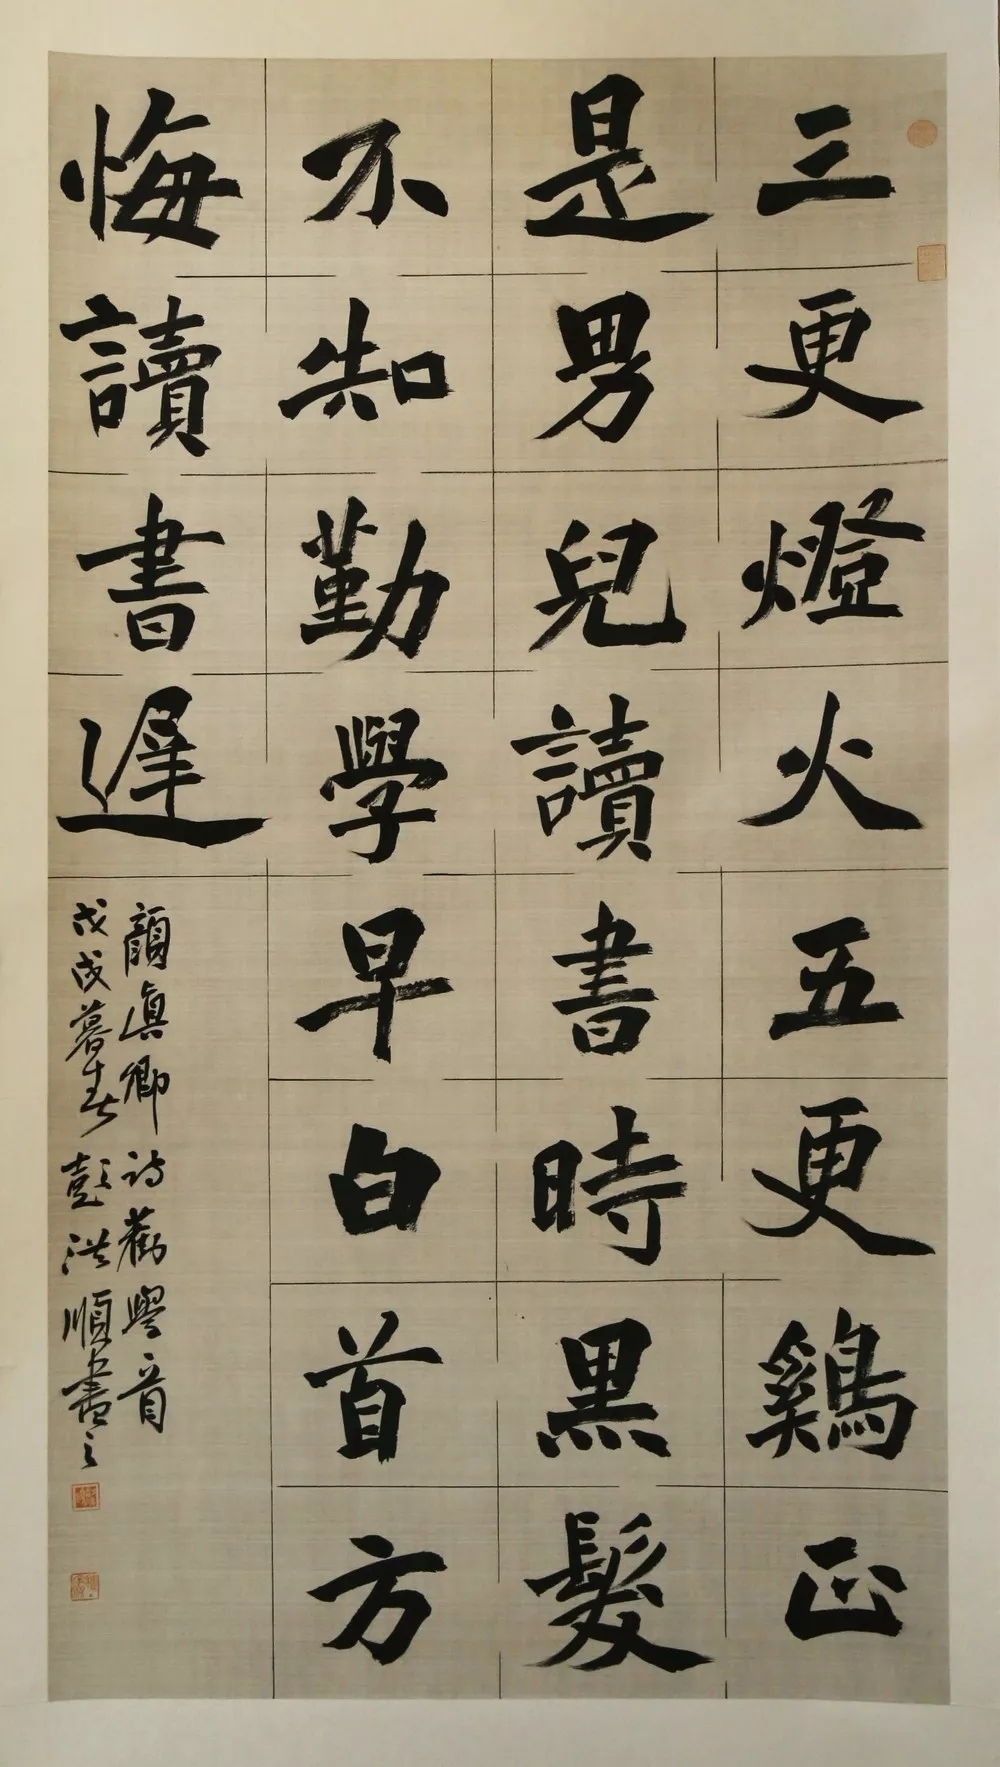 三更燈火五更鷄正
是男兒讀書時黑髮
不知勤學早白首方
悔讀書遲
顏真卿詩勸學一首
戊戌暮春彭洪順書之